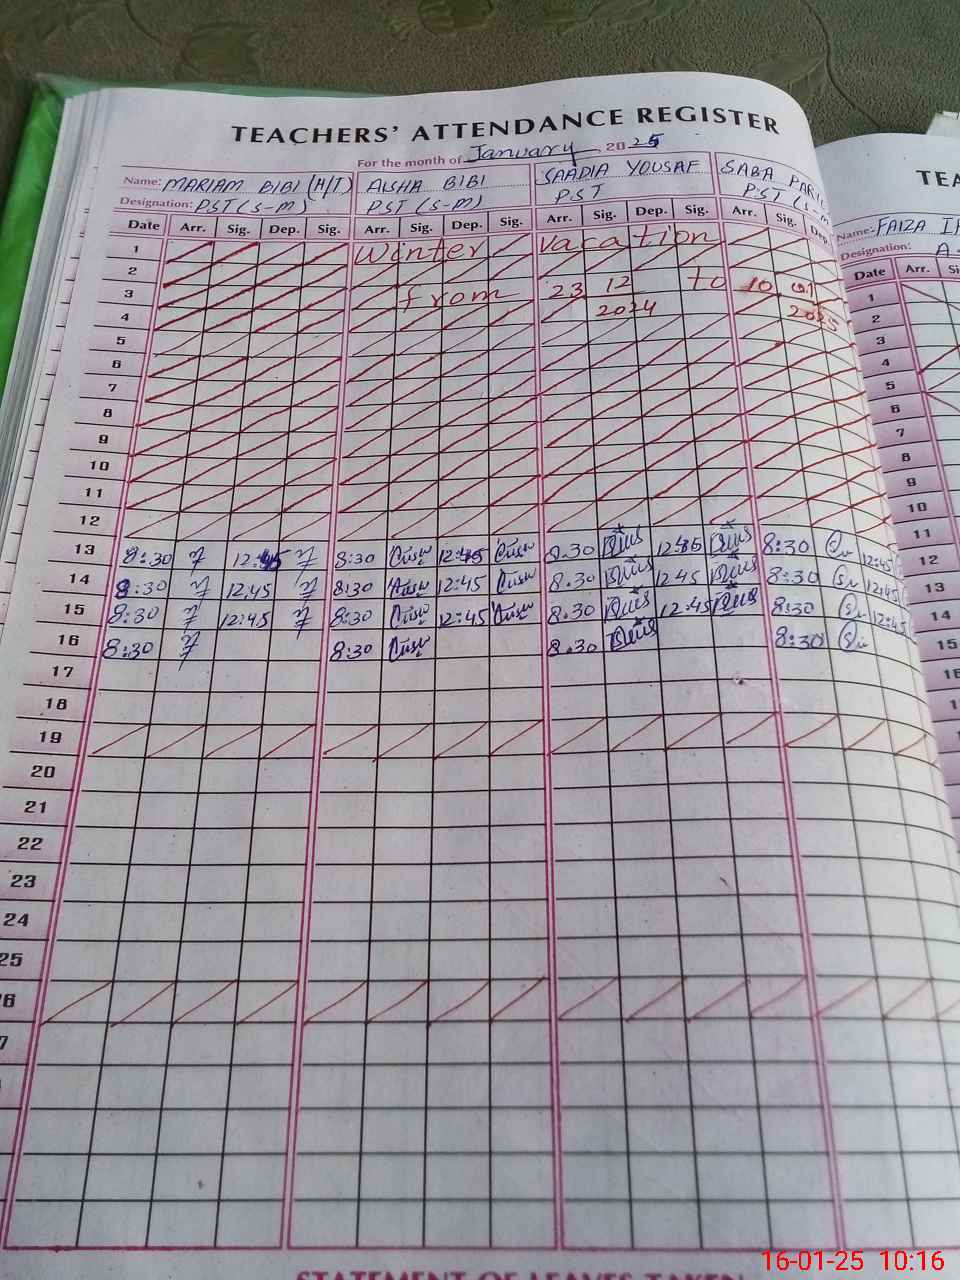 TEACHERS' ATTENDANCE REGISTER
For the month of January, 2025
Name: MARIAM BIBI (H/T) AISHA BIBI SAADIA YOUSAF SABA
Designation: PST (S-M) PST (S-M) PST PST (S-M
Date Arr. Sig. Dep. Sig. Arr. Sig. Dep. Sig. Arr. Sig. Dep. Sig. Arr. Sig. Dep.
1 Winter vacation
2
3 from 23 12 to 10 01
4 2024 2025
5
6
7
8
9
10
11
12
13 8:30 12:45 8:30 12:45 8.30 12:45 8:30 12:45
14 8:30 12:45 8:30 12:45 8.30 12.45 8:30 12:45
15 8:30 12:45 8:30 12:45 8.30 12:45 8:30 12:45
16 8:30 8:30 8.30 8:30
17
18
19
20
21
22
23
24
25
6
7
TEA
Name- FAIZA
Designation: A-
Date Arr. Si
1
2
3
4
5
6
7
8
9
10
11
12
13
14
15
16
1
STATEMENT OF LEAVES TAKEN
16-01-25 10:16